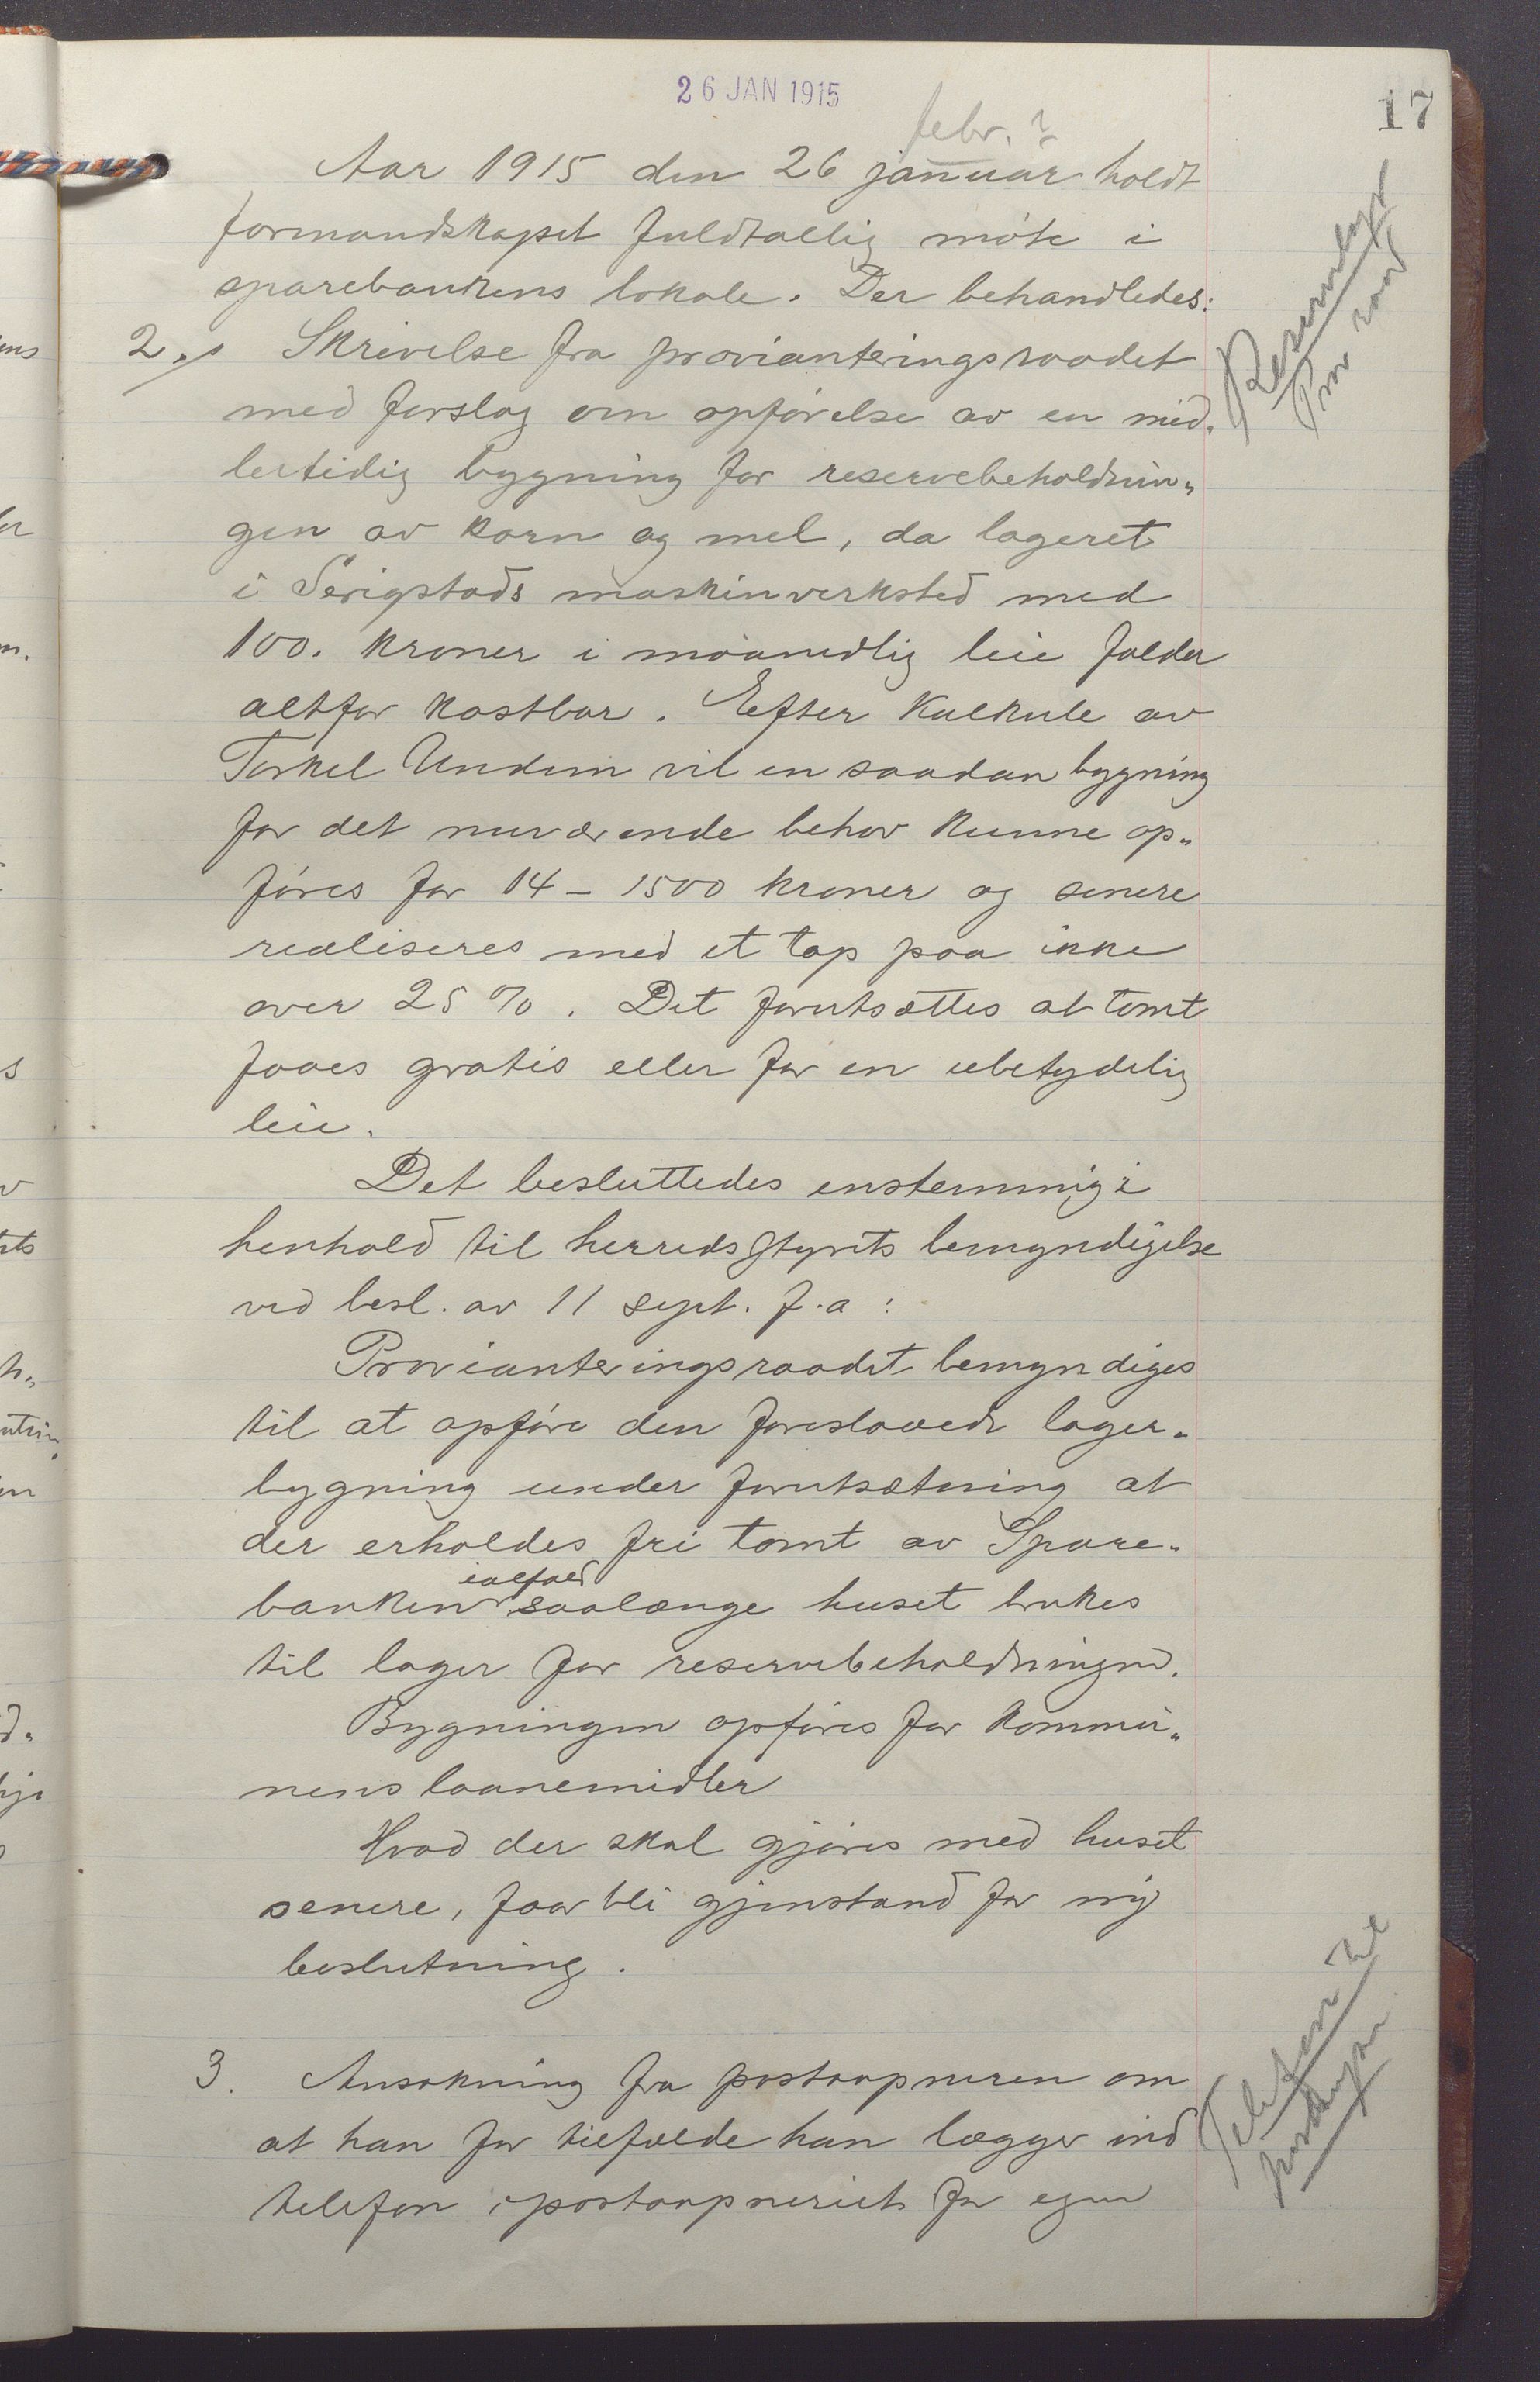 26 JAN 1915
17
febr. ?
Aar 1915 den 26 januar holdt
formandskapet fuldtallig møte i
sparebankens lokale. Der behandledes:
2. Skrivelse fra provianteringsraadet
med forslag om opførelse av en mid„
lertidig bygning for reservebeholdnin„
gen av korn og mel, da lageret
i Serigstads maskinverksted med
100. kroner i maanedlig leie falder
altfor kostbar. Efter kalkule av
Torkel Undem vil en saadan bygning
for det nuværende behov kunne op„
føres for 14 – 1500 kroner og senere
realiseres med et tap paa ikke
over 25 %. Det forutsættes at tomt
faaes gratis eller for en ubetydelig
leie.
Det besluttedes enstemmig i
henhold til herredsstyrets bemyndigelse
ved besl. av 11 sept. f.a:
Provianteringsraadet bemyndiges
til at opføre den foreslaaede lager„
bygning under forutsætning at
der erholdes fri tomt av Spare„
ialfald
banken saalænge huset brukes
til lager for reservebeholdningen.
Bygningen opføres for kommu„
nens laanemidler
Hvad der skal gjøres med huset
senere, faar bli gjenstand for ny
beslutning.
3. Ansøkning fra postaapneren om
at han for tilfælde han lægger ind
telefon i postaapneriet for egen
Prov raad
Telefon til